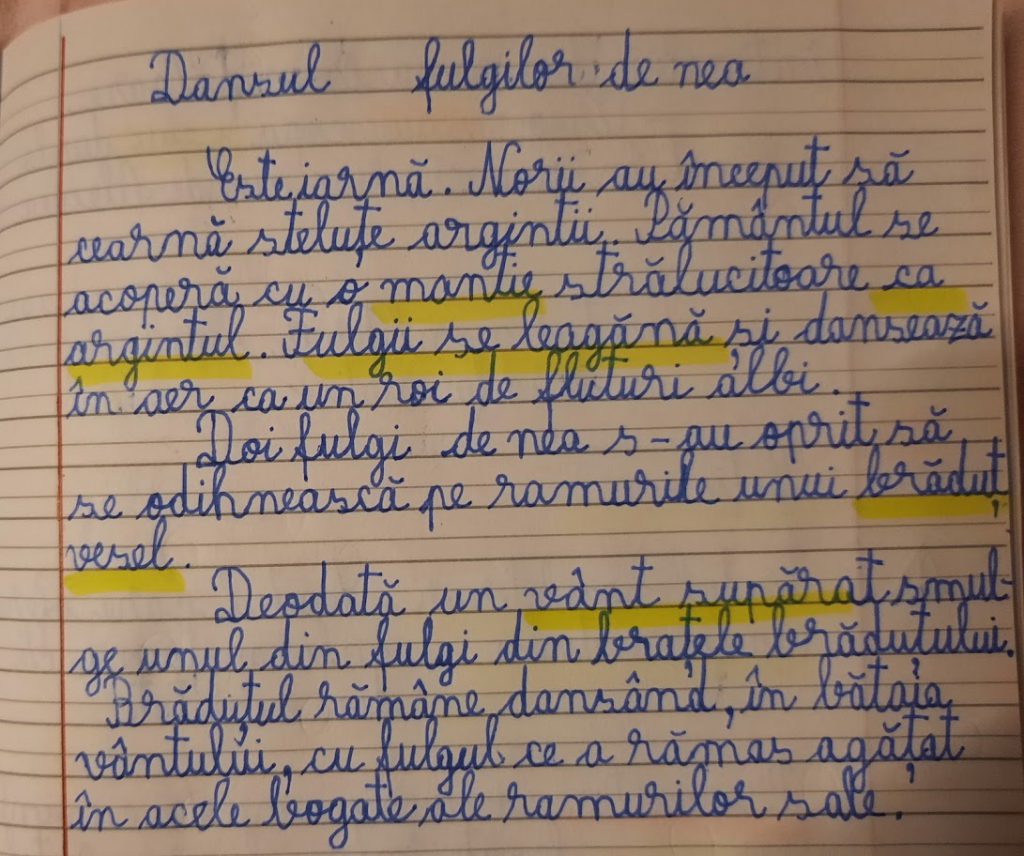 Dansul fulgilor de nea
Este iarnă. Norii au început să
cearnă steluțe argintii. Pământul se
acoperă cu o mantie strălucitoare ca
argintul. Fulgii se leagănă si dansează
în aer ca un roi de fluturi albi.
Doi fulgi de nea s-au oprit să
se odihnească pe ramurile unui brăduț
vesel.
Deodată un vânt supărat smul-
ge unul din fulgi din brațele brăduțului.
Brăduțul rămâne dansând, în bătaia
vântului, cu fulgul ce a rămas agățat
în acele bogate ale ramurilor sale.